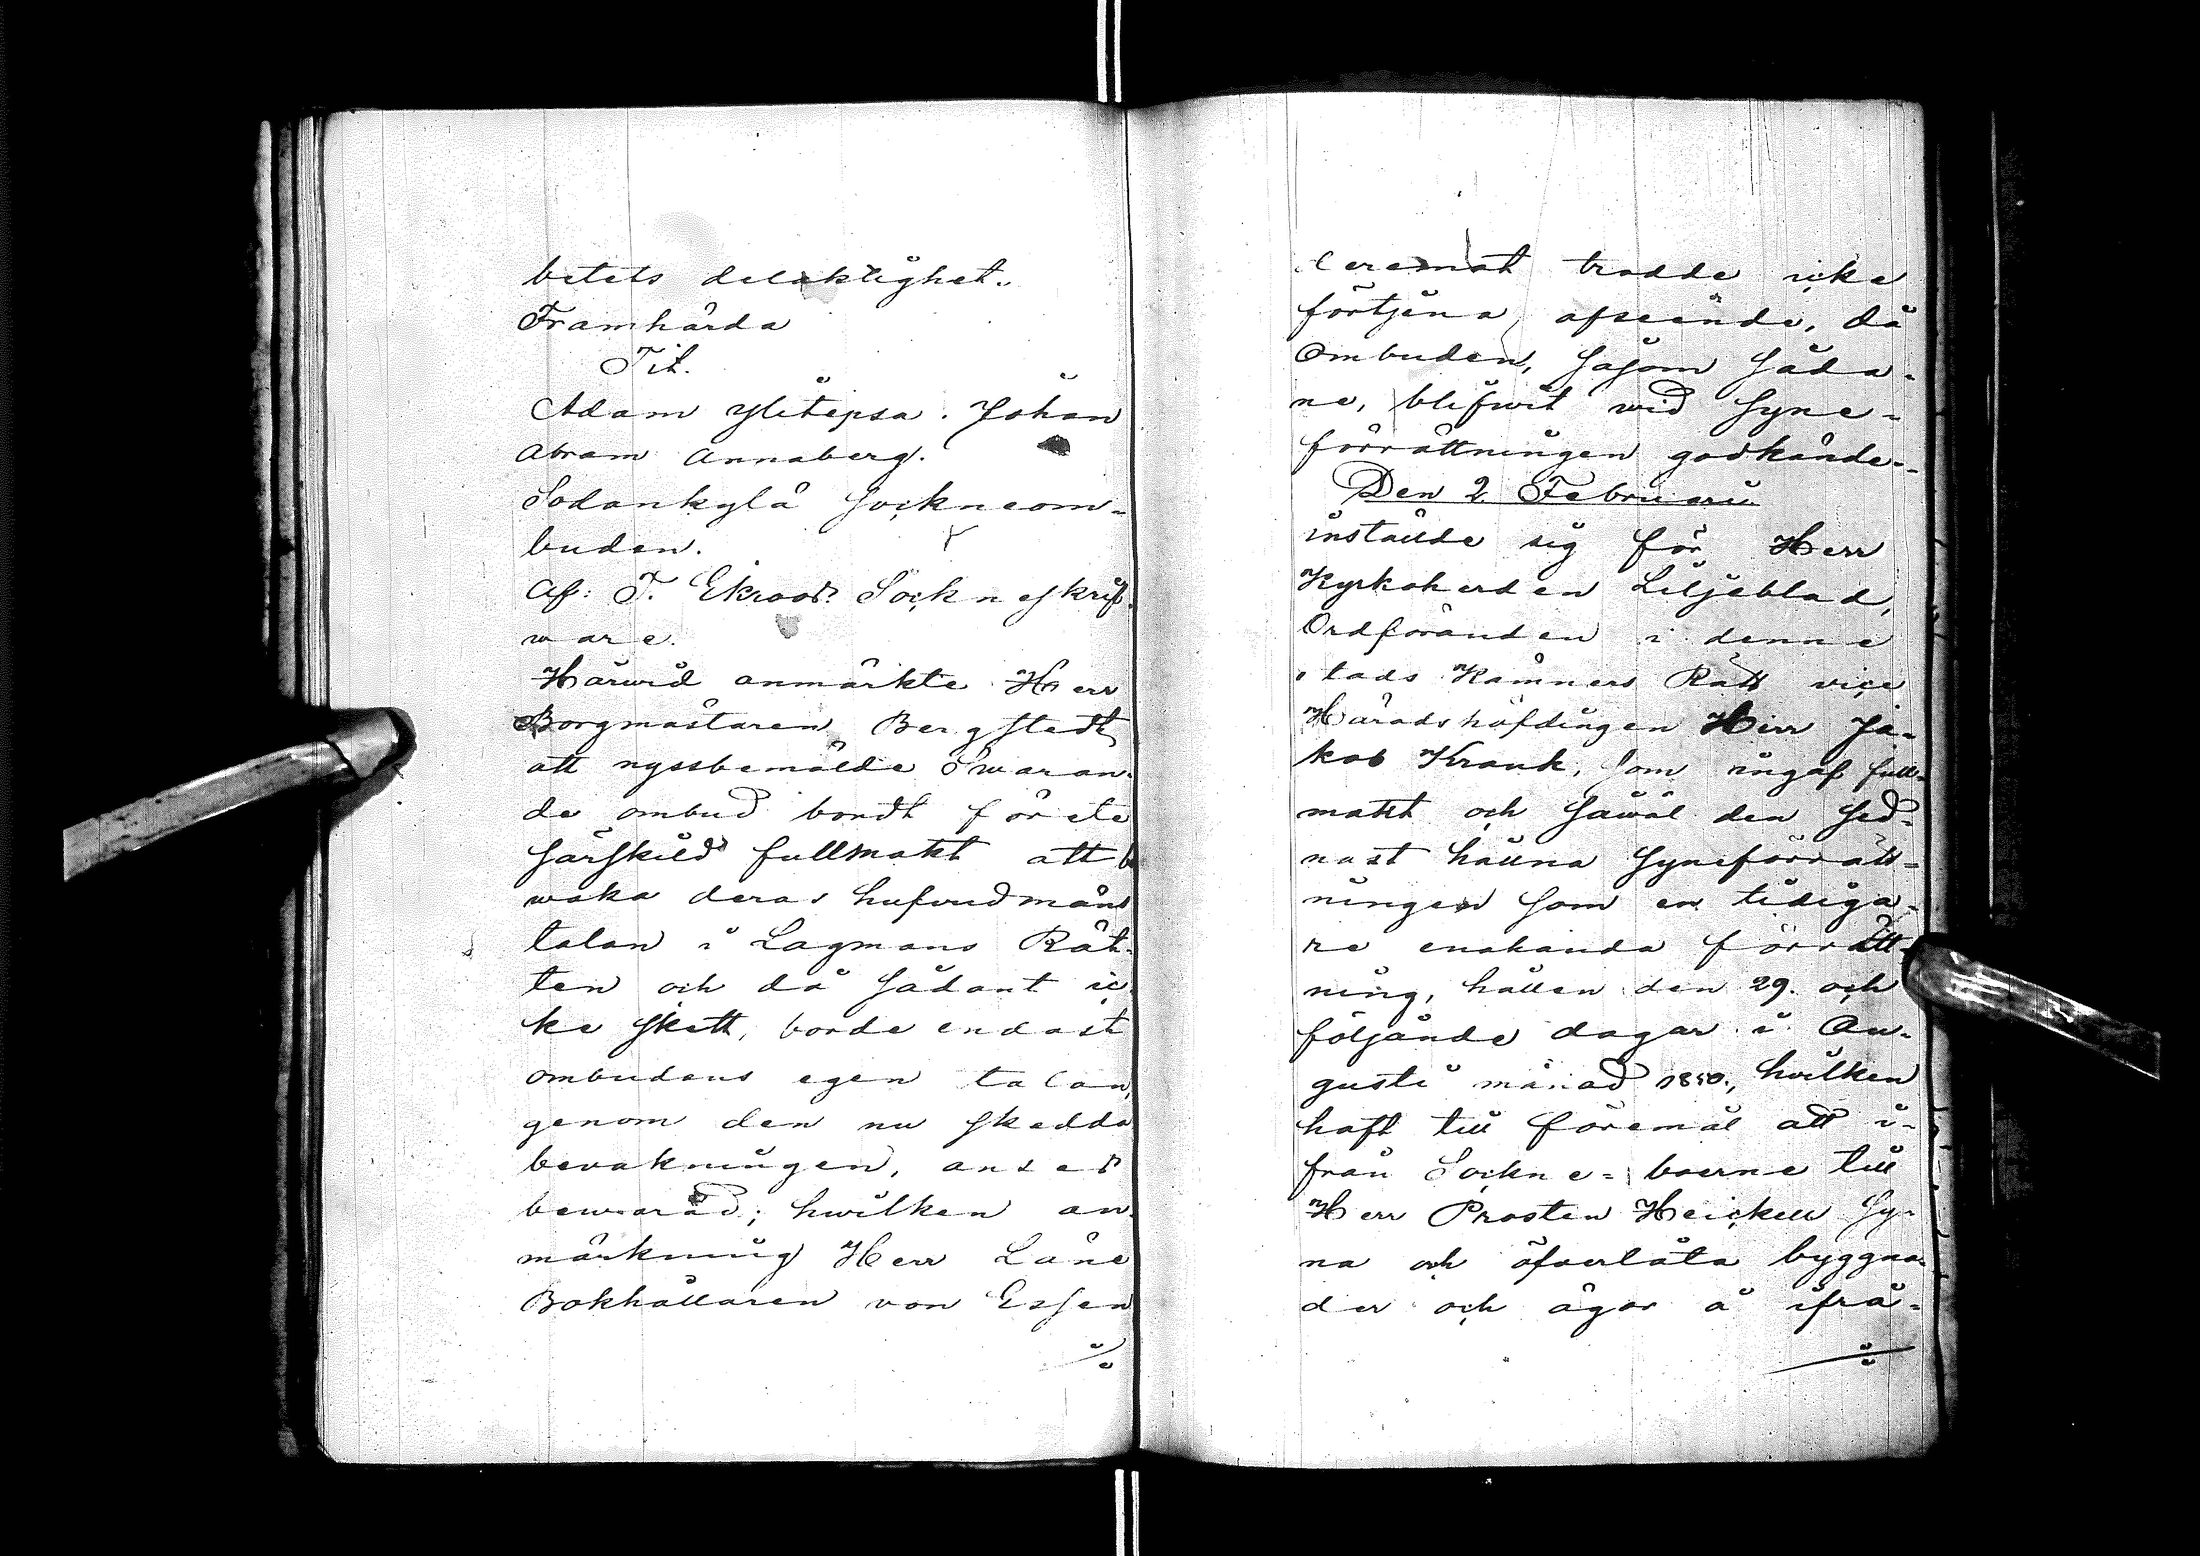 betets delaktighet.
Framhärda
Tit.
Adam Ylitepsa. Johan
Abram Annaberg.
Sodankylä Sockneom-
buden.
Af: T. Ekroos? Sockneskrif-
ware.
Härwid anmärkte Herr
Borgmästaren Bergstedt
att nyssbemälde Swaran-
de ombud bordt förete
särskild fullmakt att be-
waka deras hufwudmäns
talan i Lagmans Rät-
ten och då sådant ic-
ke skett, borde endast
ombudens egen talan,
genom den nu skedda
bevakningen, anses
bewarad; hwilken an-
märkning Herr Läne
Bokhållaren von Essen
./.
deremot trodde icke
förtjena afseende, då
Ombuden, såsom såda-
ne, blifwit wid Syne-
förrättningen godkände.
Den 2 Februarii
instälde sig för Herr
Kyrkoherden Liljeblad,
Ordföranden i denne
stads Kämners Rätt vice
Häradshöfdingen Herr Ja-
kob Krank, som ingaf full-
makt och såwäl den sed-
nast hållna Syneförrätt-
ningen som en tidiga-
re enahanda förrätt-
ning, hållen den 29. och
följande dagar i Au-
gusti månad 1850., hvilken
haft till föremål att i-
från Sockne-boerne till
Herr Prosten Heickell Sy-
na och öfverlåta byggna-
der och ägor å ifrå-
./.